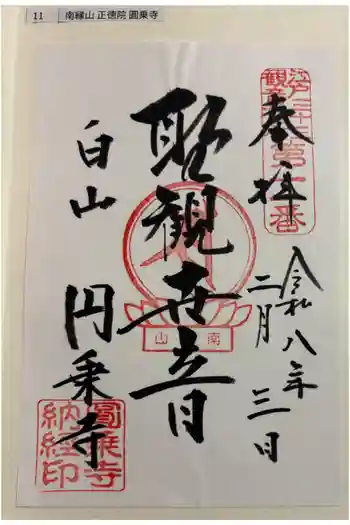 11 南縁山 正徳院 圓乗寺
奉拝
令和八年
二月三日
聖観世音
白山 円乗寺
江戸三十三
観音第十一番
南山
圓乗寺
納経印